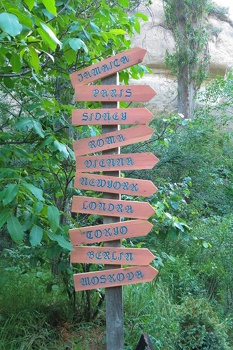 JAMAICA
PARIS
SIDNEY
ROMA
VIENNA
NEWYORK
LONDRA
TOKYO
BERLIN
MOSKOVA